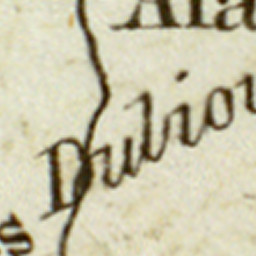 Ala
Dubiou
s